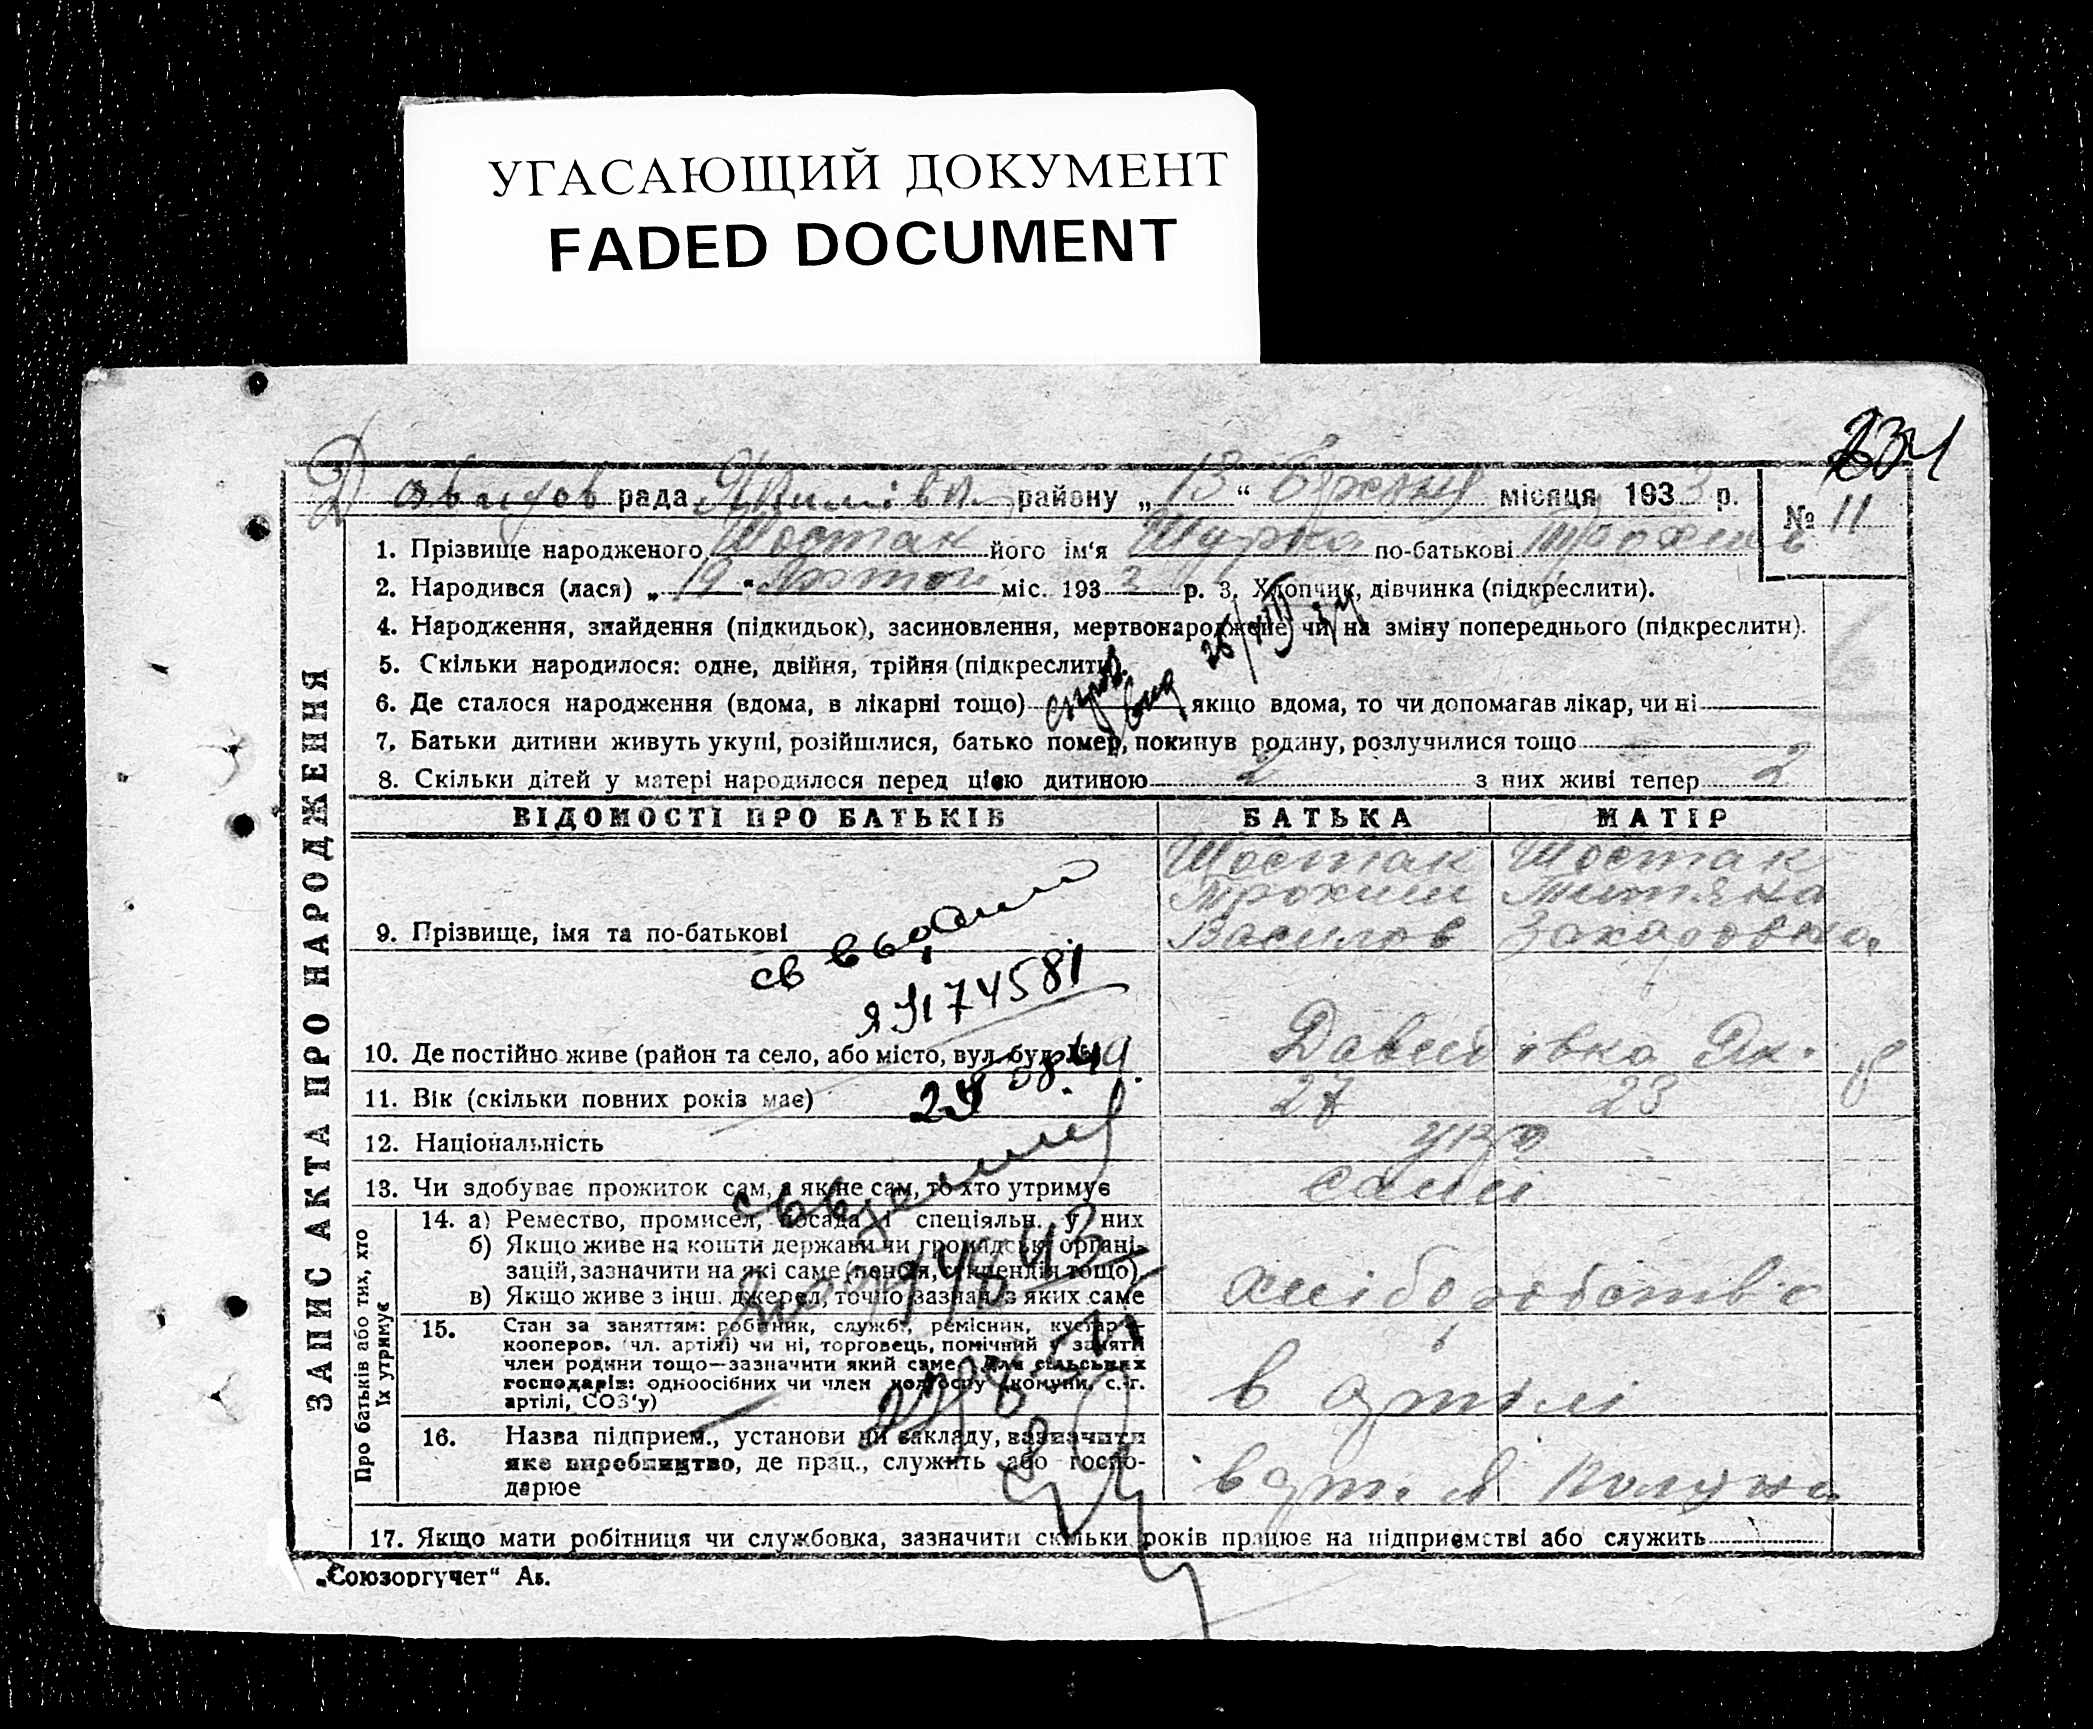 УГАСАЮЩИЙ ДОКУМЕНТ
FADED DOCUMENT
231
Давидов рада Якимівк. району „13“ березня місяця 1933 р.
№ 11
1. Прізвище народженого Шостак його ім'я Шурка по-батькові
2. Народився (лася) „19“ міс. 1932 р. 3. Хлопчик, дівчинка (підкреслити).
4. Народження, знайдення (підкидьок), засиновлення, мертвонароджене, чи на зміну попереднього (підкреслити).
5. Скільки народилося: одне, двійня, трійня (підкреслити).
6. Де сталося народження (вдома, в лікарні тощо) якщо вдома, то чи допомагав лікар, чи ні
7. Батьки дитини живуть укупі, розійшлися, батько помер, покинув родину, розлучилися тощо
8. Скільки дітей у матері народилося перед цією дитиною 2 з них живі тепер 2
ЗАПИС АКТА ПРО НАРОДЖЕННЯ
ВІДОМОСТІ ПРО БАТЬКІВ БАТЬКА МАТІР
Шостак Шостак
Трохим Титяна
9. Прізвище, імя та по-батькові Василов Захаровна
174581
10. Де постійно живе (район та село, або місто, вул. буд. №) Давидівка Як.
11. Вік (скільки повних років має) 27 23
12. Національність укр
13. Чи здобуває прожиток сам, а як не сам, то хто утримує самі
Про батьків або тих, хто їх утримує
14. а) Ремество, промисел, посада і спеціяльн. у них
б) Якщо живе на кошти держави чи громадськ. органі-
зацій, зазначити на які саме (пенсія, стипендія тощо)
в) Якщо живе з інш. джерел, точно зазнач. з яких саме хліборобство
15. Стан за заняттям: робітник, службв., ремісник, кустар—
кооперов. (чл. артілі) чи ні, торговець, помічний у занятті
член родини тощо—зазначити який саме. Для сільських
господарів: одноосібних чи член колгоспу (комуни, с.-г.
артілі, СОЗ'у) в артілі
16. Назва підприєм., установи чи закладу, зазначити
яке виробництво, де прац., служить або госпо-
дарює в арт.
17. Якщо мати робітниця чи службовка, зазначити скільки років працює на підприємстві або служить
„Союзоргучет“